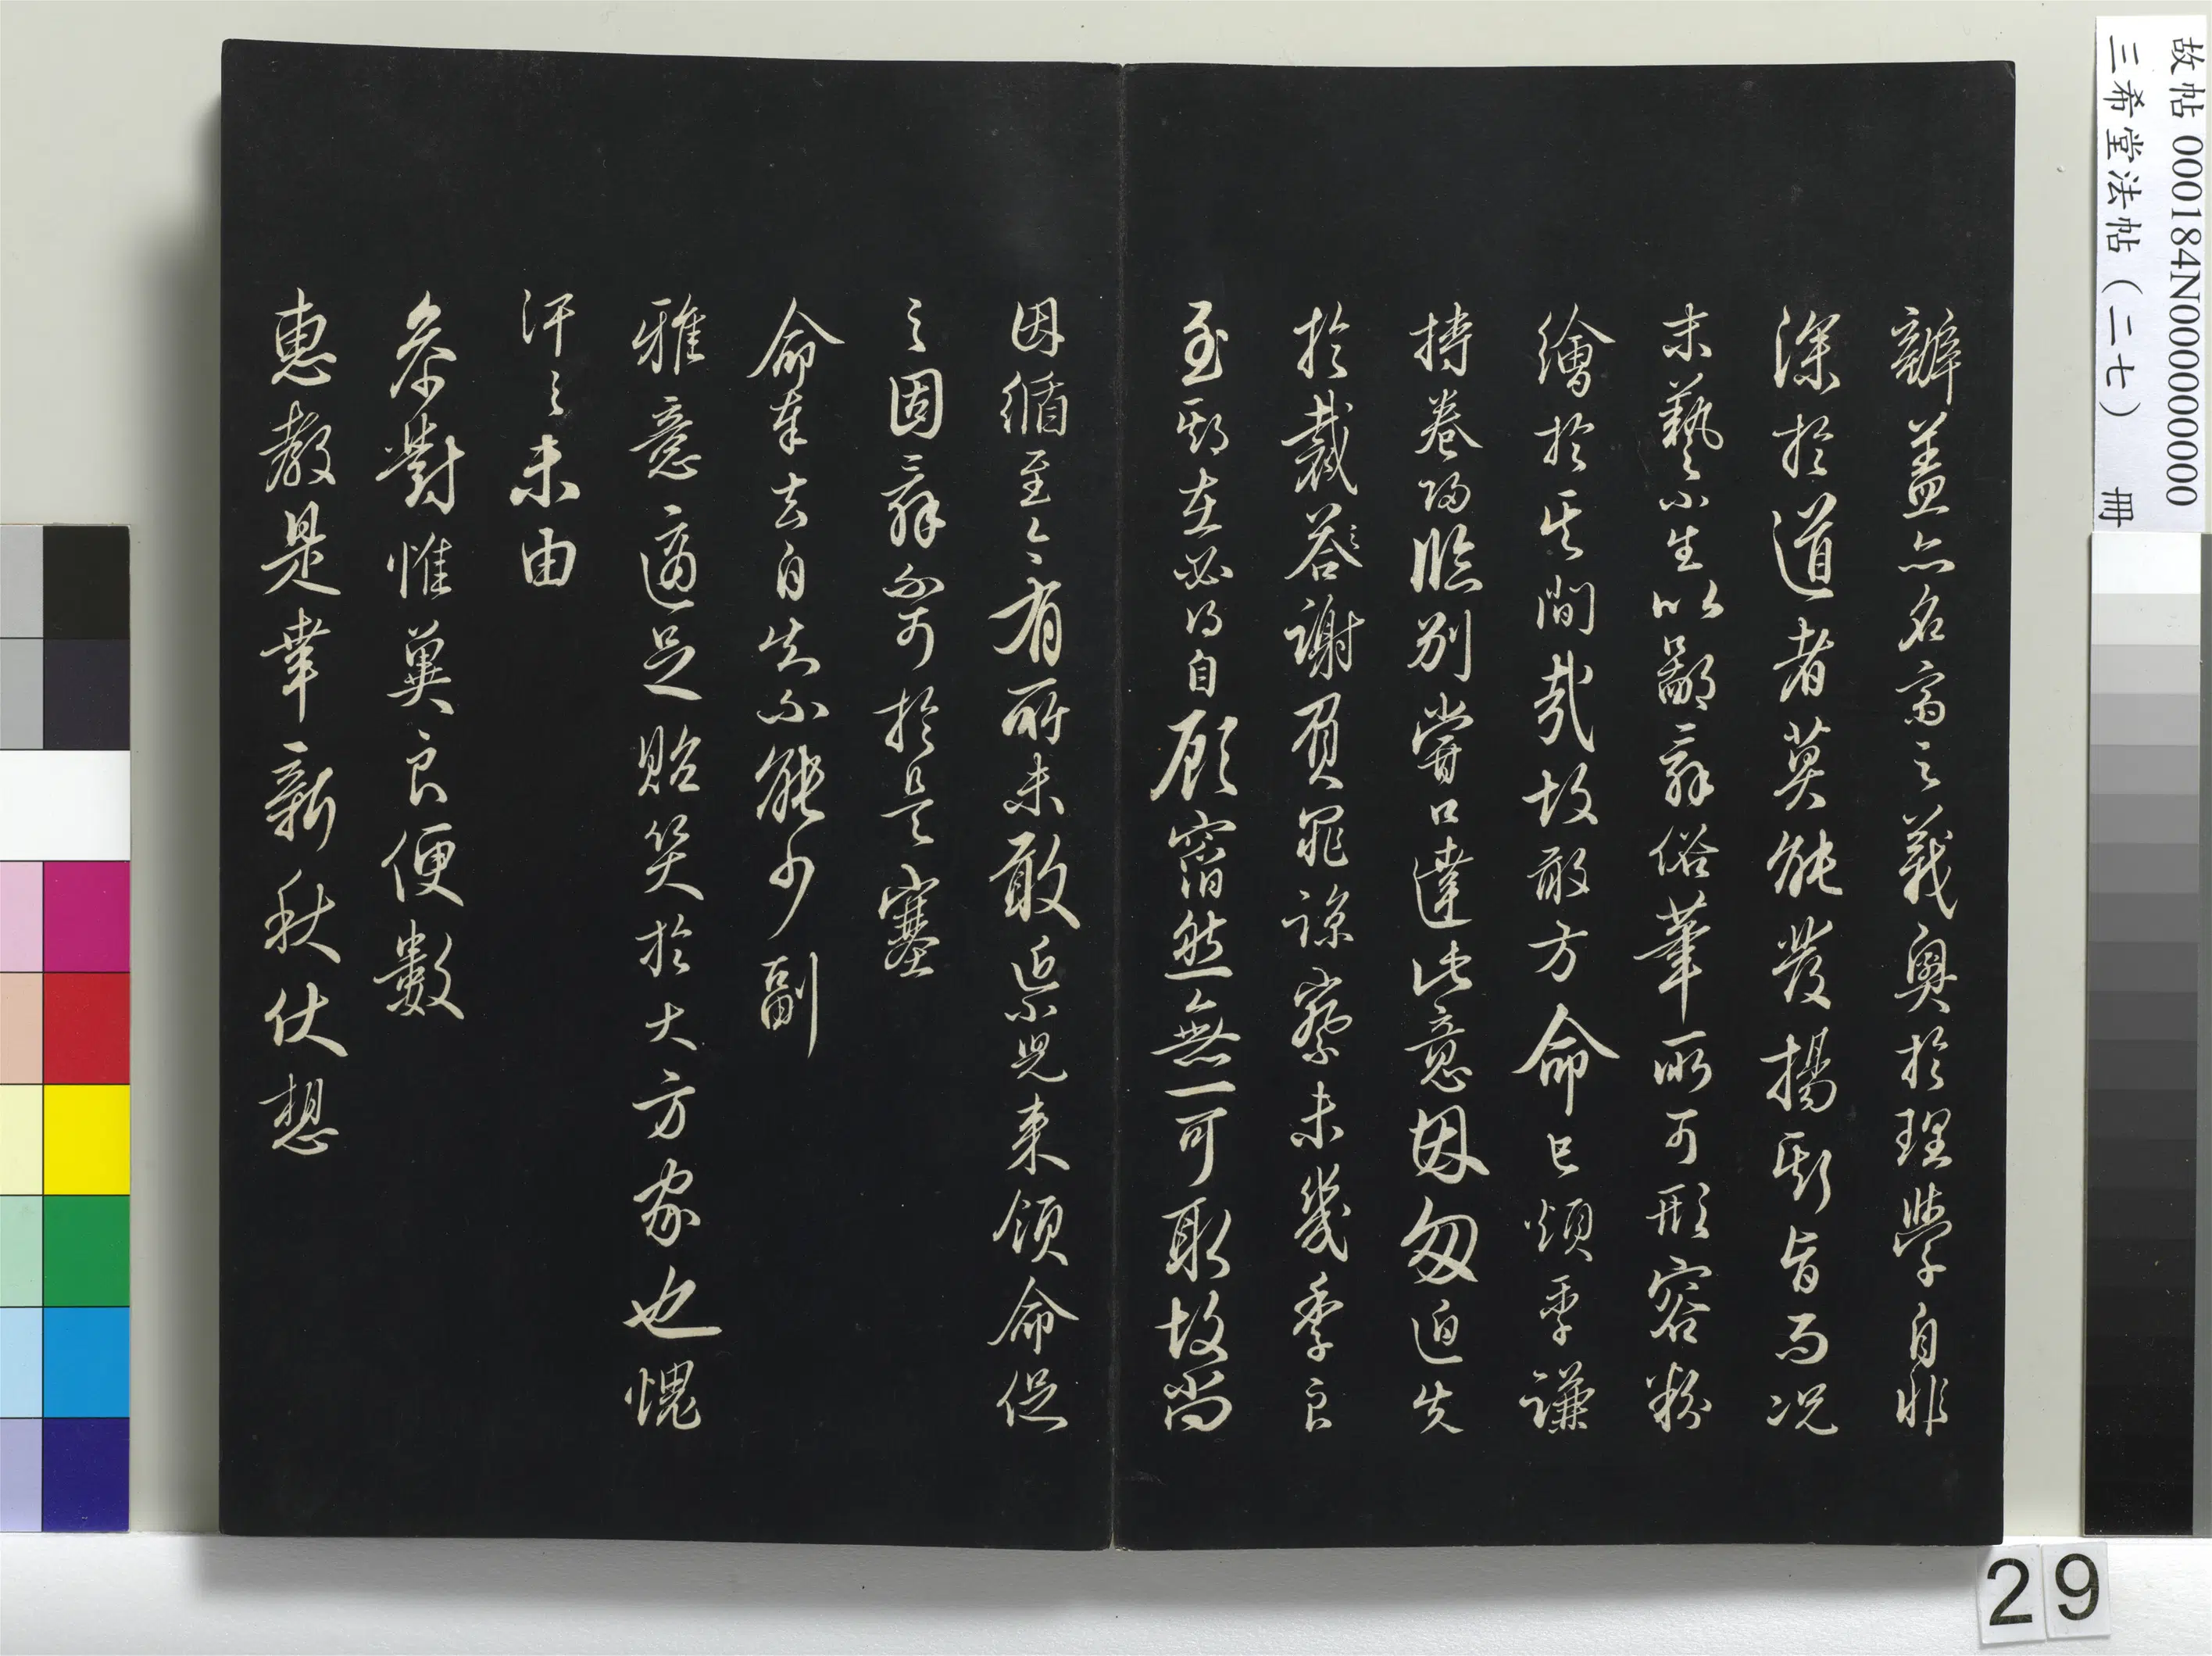 辦蓋亦名齋之義奧於理學自非
深於道者莫能發揚斯旨而况
末藝小生以鄙辭俗筆所可形容粉
繪於其間哉故敢方命已煩季謙
持卷歸臨別嘗口達此意因匆迫失
於裁答謝負罪諒察未幾季良
至郡在必得自顧窘然無一可取故尚
因循至今有所未敢近縈兒来領命促
之固辭不可於是塞
命奉去自失不能少副
雅意適足貽笑於大方家也愧
汗之未由
参對惟冀良便數
惠教是幸新秋伏想
故帖 000184N000000000
三希堂法帖（二七） 冊
29